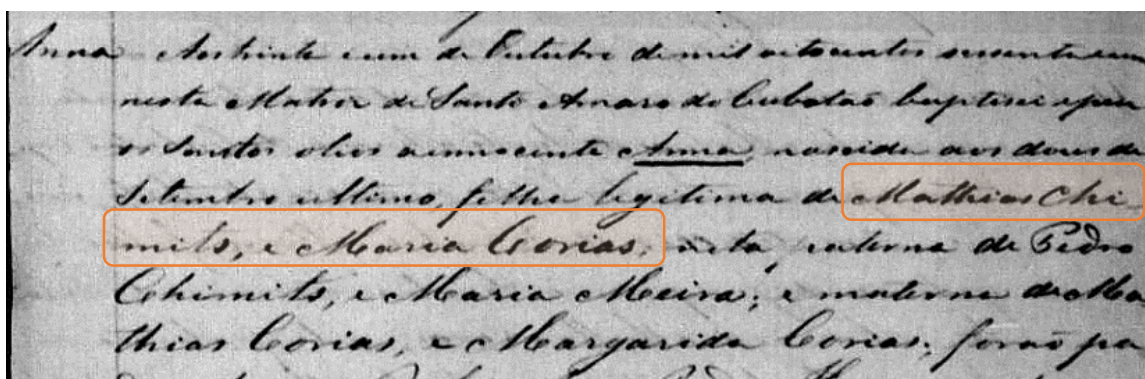 Anna Aos trinta e um de Outubro de mil oitocentos sessenta e um
nesta Matriz de Santo Amaro do Cubatão baptisei e puz
os Santos olios a innocente Anna, nascida aos dous de
Setembro ultimo, filha legitima de Mathias Chi
mits, e Maria Corias, neta paterna de Pedro
Chimits, e Maria Meira; e materna de Ma
thias Corias, e Margarida Corias; forão pa